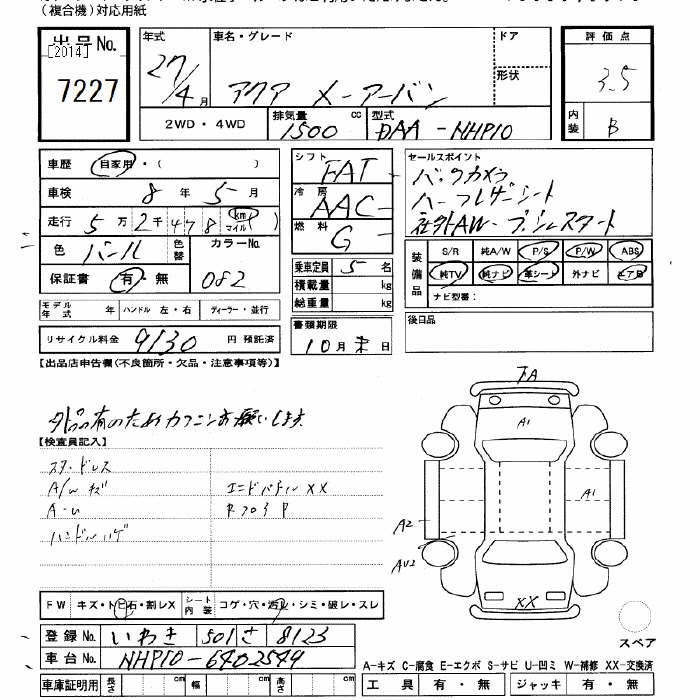 (複合機)対応用紙
出品No. 年式 車名・グレード ドア 評価点
[2014] 27/4月 アクア X-アーバン 形状 3.5
7227
2WD・4WD 排気量 1500 cc 型式 DAA-NHP10 内装 B
車歴 自家用・( ) シフト FAT セールスポイント
車検 8年5月 冷房 AAC バックカメラ
走行 5万2千478 km マイル ( ) 燃料 G ハーフレザーシート
色 パール 色替 カラーNo. 082 社外AW-プッシュスタート
保証書 有・無 乗車定員 5名 装備品 S/R 純A/W P/S P/W ABS
積載量 kg 純TV 純ナビ 革シート 外ナビ エアB
総重量 kg ナビ型番:
モデル年式 年 ハンドル 左・右 ディーラー・並行 書類期限 後日品
リサイクル料金 9130 円 預託済 10月末日
【出品店申告欄(不良箇所・欠品・注意事項等)】
【検査員記入】
スタッドレス
A/Wキズ エンドパネルXX
A-U
ハンドルハゲ
TA
A1
A1
A2
AU2
XX
FW キズ・トビ石・割レX シート内装 コゲ・穴・汚レ・シミ・破レ・スレ
登録No. いわき 501 さ 8123 スペア
車台No. NHP10-6402549 A-キズ C-腐食 E-エクボ S-サビ U-凹ミ W-補修 XX-交換済
車庫証明用 長さ cm 幅 cm 高さ cm 工具 有・無 ジャッキ 有・無